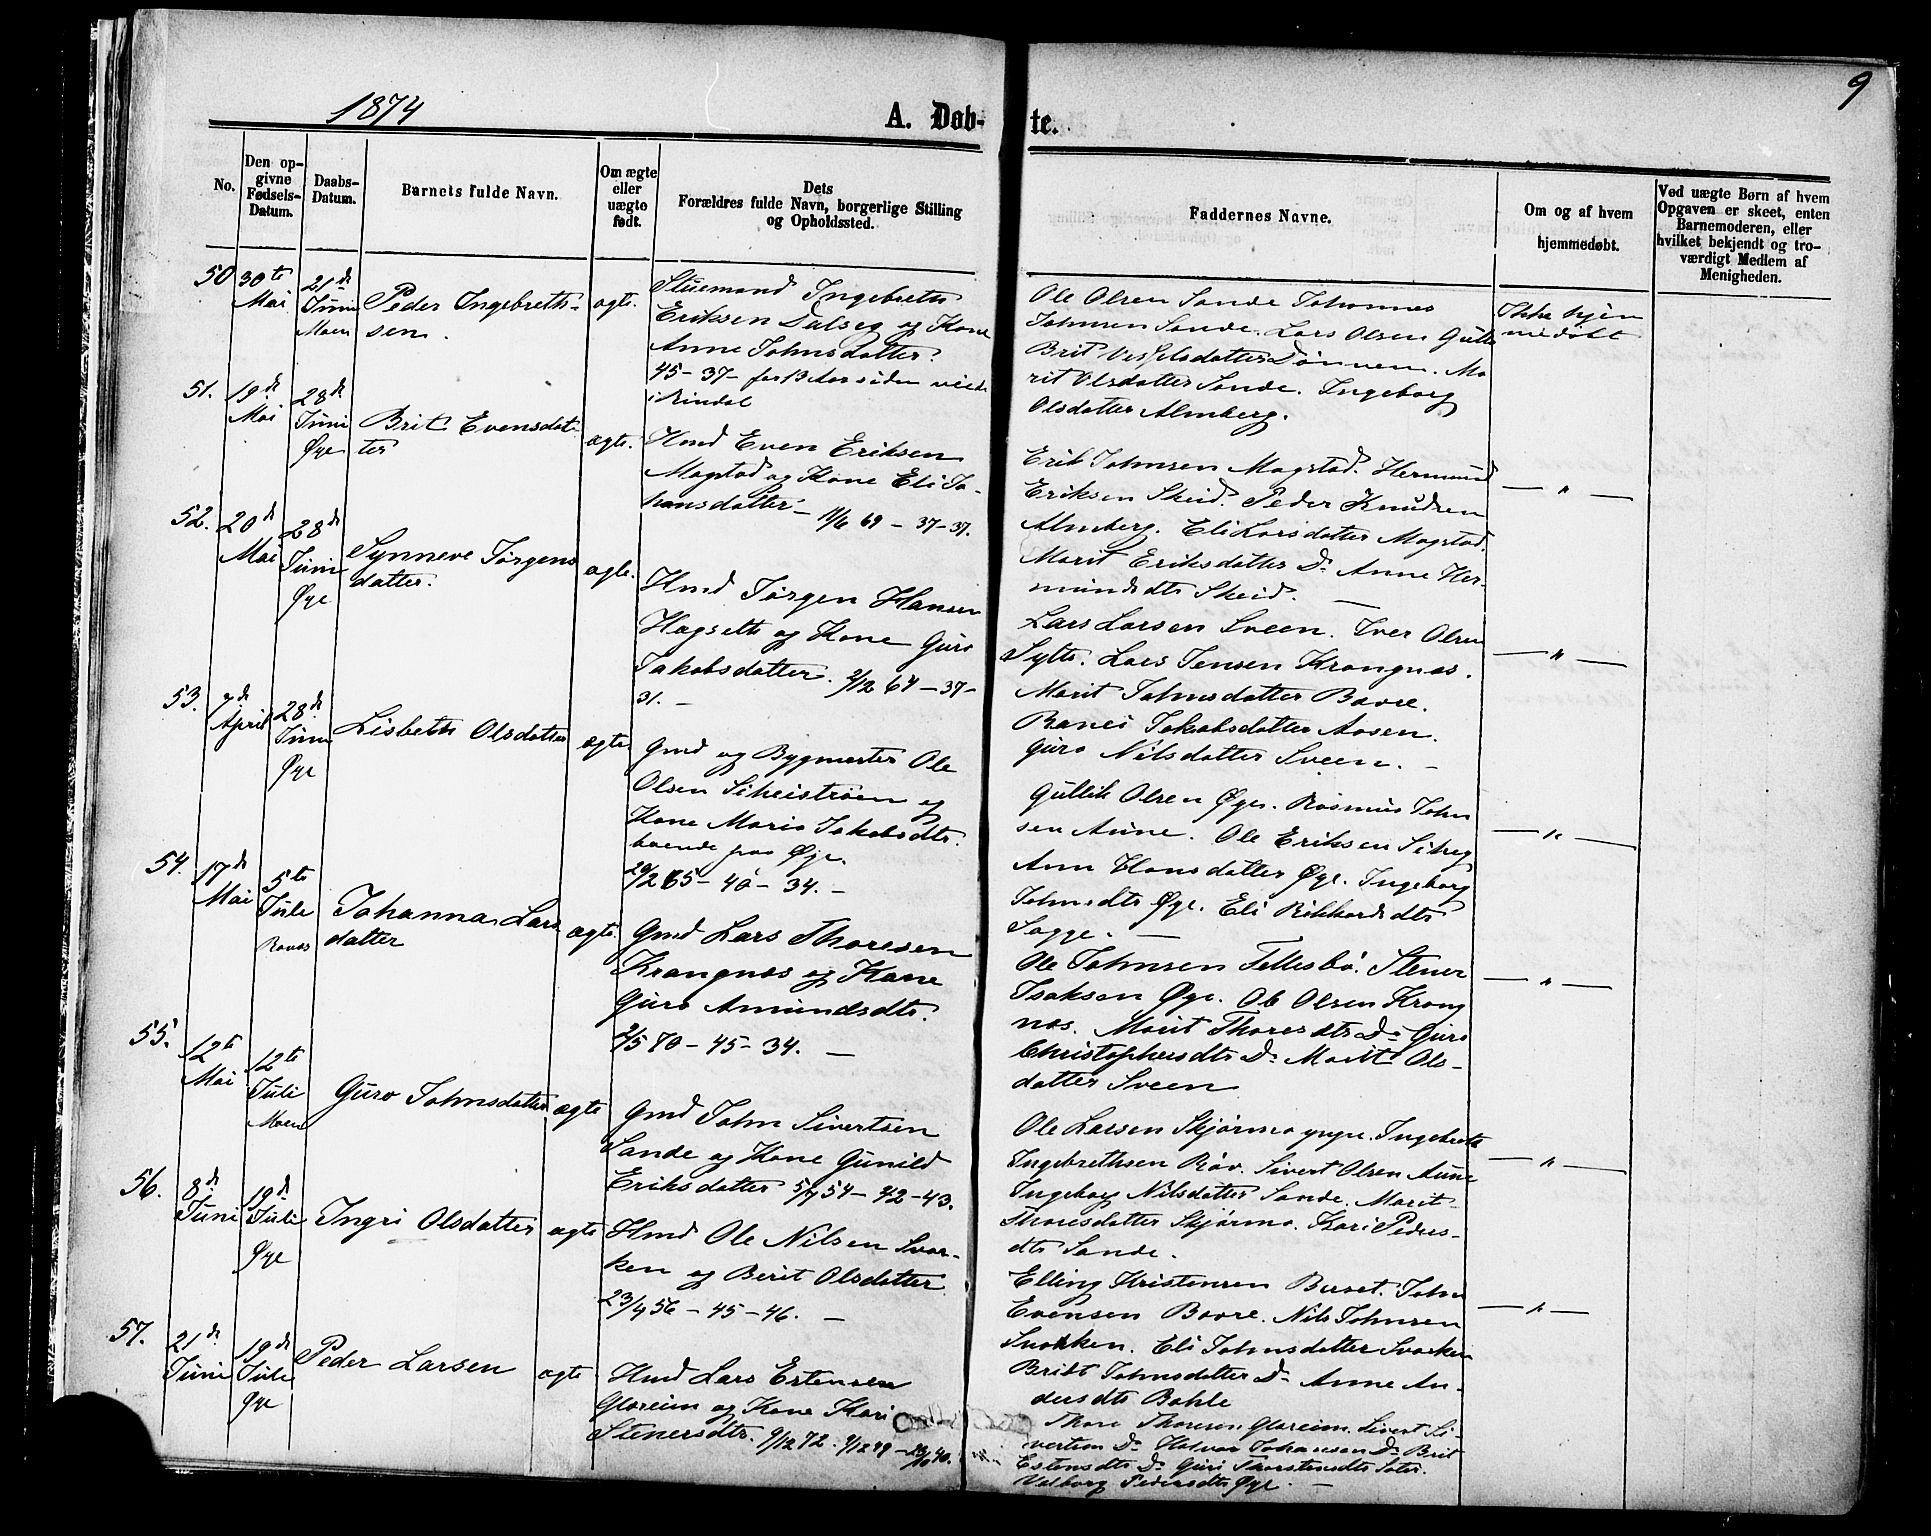 1874
A. Døb-
te.
9
No.
Den op-
givne
Fødsels-
Datum.
Daabs-
Datum.
Barnets fulde Navn.
Om ægte
eller
uægte
født.
Dets
Forældres fulde Navn, borgerlige Stilling
og Opholdssted.
Faddernes Navne.
Om og af hvem
hjemmedøbt.
Ved uægte Børn af hvem
Opgaven er skeet, enten
Barnemoderen, eller
hvilket bekjendt og tro-
værdigt Medlem af
Menigheden.
50
30te
Mai
21de
Juni
Moen
Peder Ingebreth-
sen.
ægte.
Stuemand Ingebreth
Eriksen Dalseg og Kone
Anne Johnsdatter.
45-37- for 13 Aar siden viede
i Rindal
Ole Olsen Sande Johannes
Johnsen Sande. Lars Olsen
Brit Dønnem. Ma
rit Olsdatter Sande. Ingeborg
Olsdatter Almberg.
Ikke hjem
medøbt
51.
19de
Mai
28de
Juni
Øye
Brit Evensdat
ter
ægte.
Hmd Even Eriksen
Mogstad og Kone Eli Jo-
hansdatter - 11/6 69 - 37-37.
Erik Johnsen Mogstad. Hermund
Eriksen Skeid. Peder Knudsen
Almberg. Eli Larsdatter Mogstad.
Marit Eriksdatter Do Anne Her-
mundsdtr Skeid. —
— " —
52.
20de
Mai
28de
Juni
Øye
Synneve Jørgens
datter.
ægte.
Hmd Jørgen Hansen
Hagseth og Kone Guro
Jakobsdatter. 2/12 64 - 37-
31. —
Lars Larsen Sveen. Iver Olsen
Sylte. Lars Jensen Krangnæs.
Marit Johnsdatter Bævre.
Ranei Jakobsdatter Aasen.
Guro Nilsdatter Sveen. —
— " —
53.
7de
April
28de
Juni
Øye
Lisbeth Olsdatter
ægte
Gmd og Bygmester Ole
Olsen og
Kone Marie Jakobsdtr.
boende paa Øye.
29/2 65 - 40 - 34. —
Gullik Olsen Øye. Rasmus John
sen Aune. Ole Eriksen
Ann Hansdatter Øye. Ingeborg
Johnsdtr Øye. Eli Rikhardsdtr
Sogge. —
— " —
54.
17de
Mai
5te
Juli
Ranes
Johanna Lars
datter
ægte.
Gmd Lars Thoresen
Krangnæs og Kone
Guro Amundsdtr.
2/5 70 - 45 - 34. —
Ole Johnsen Fellesbø. Stener
Isaksen Øye. Ole Olsen Krang
næs. Marit Thoresdtr Do Guro
Christophersdtr Do Marit Ols-
datter Sveen
— " —
55.
12te
Mai
12te
Juli
Moen
Guro Johnsdatter
ægte
Gmd John Sivertsen
Sande og Kone Gunild
Eriksdatter 5/7 54 - 42-43.
Ole Larsen Skjørmo yngre. Ingebreth
Ingebrethsen Røv. Sivert Olsen Aune
Ingeborg Nilsdatter Sande. Marit
Thoresdatter Skjørmo. Kari Peders-
dtr Sande.
— " —
56.
8de
Juni
19de
Juli
Øye
Ingri Olsdatter
ægte
Hmd Ole Nilsen Svor-
ken og Berit Olsdatter
23/4 56 - 45 - 46. —
Elling Kristensen Buset. John
Evensen Bævre. Nils Johnsen
Svorken. Eli Johnsdatter Svorken
Bridt Johnsdatter Do Anne An-
dersdtr Bahle
— " —
57.
21de
Juni
19de
Juli
Øye
Peder Larsen
ægte
Hmd Lars Estensen
Glæreim og Kone Kari
Stenersdtr.
Thore Thoresen Glæreim. Sivert Si-
vertsen Do Halvor Johansen Do Brit
Estensdtr Do Guri Thorstensdtr Sæter.
Valborg Pedersdtr Øye. —